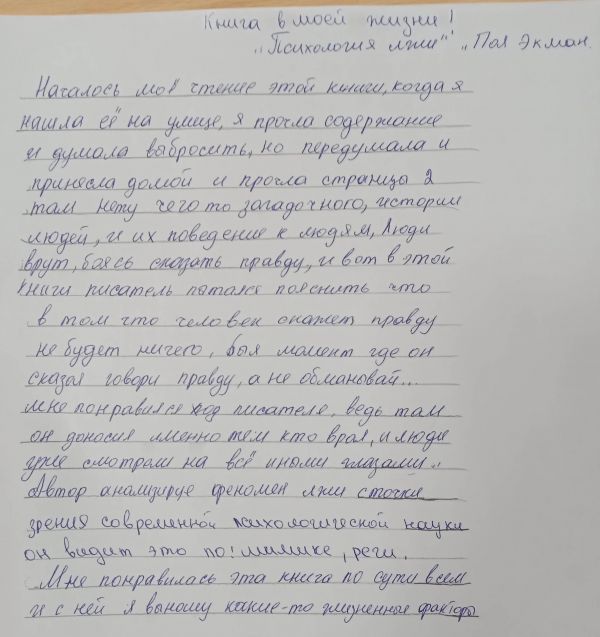 Книга в моей жизни!
„Психология лжи" „Пол Экман.
Началось моё чтение этой книги, когда я
нашла её на улице, я прочла содержание
и думала выбросить, но передумала и
принесла домой и прочла страницы 2
там нету чего то загадочного, истории
людей, и их поведение к людям, Люди
врут, боясь сказать правду, и вот в этой
книги писатель потался пояснить что
в том что человек скажет правду
не будет ничего, был момент где он
сказал говори правду, а не обманывай...
мне понравился ход писателя, ведь там
он доносил именно тем кто врал, и люди
уже смотрели на всё иными глазами..
Автор анализируе феномен лжи сточки
зрения современной психологической науки
он видит это по! мимике, речи.
Мне понравилась эта книга по сути всем
и с ней я выношу какие-то жизненные факторы